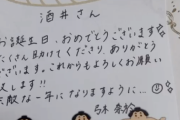 酒井さん
お誕生日、おめでとうございます
たくさん助けてくださり、ありがとう
ございます。これからもよろしくお願い
致します!!
素敵な一年になりますように...